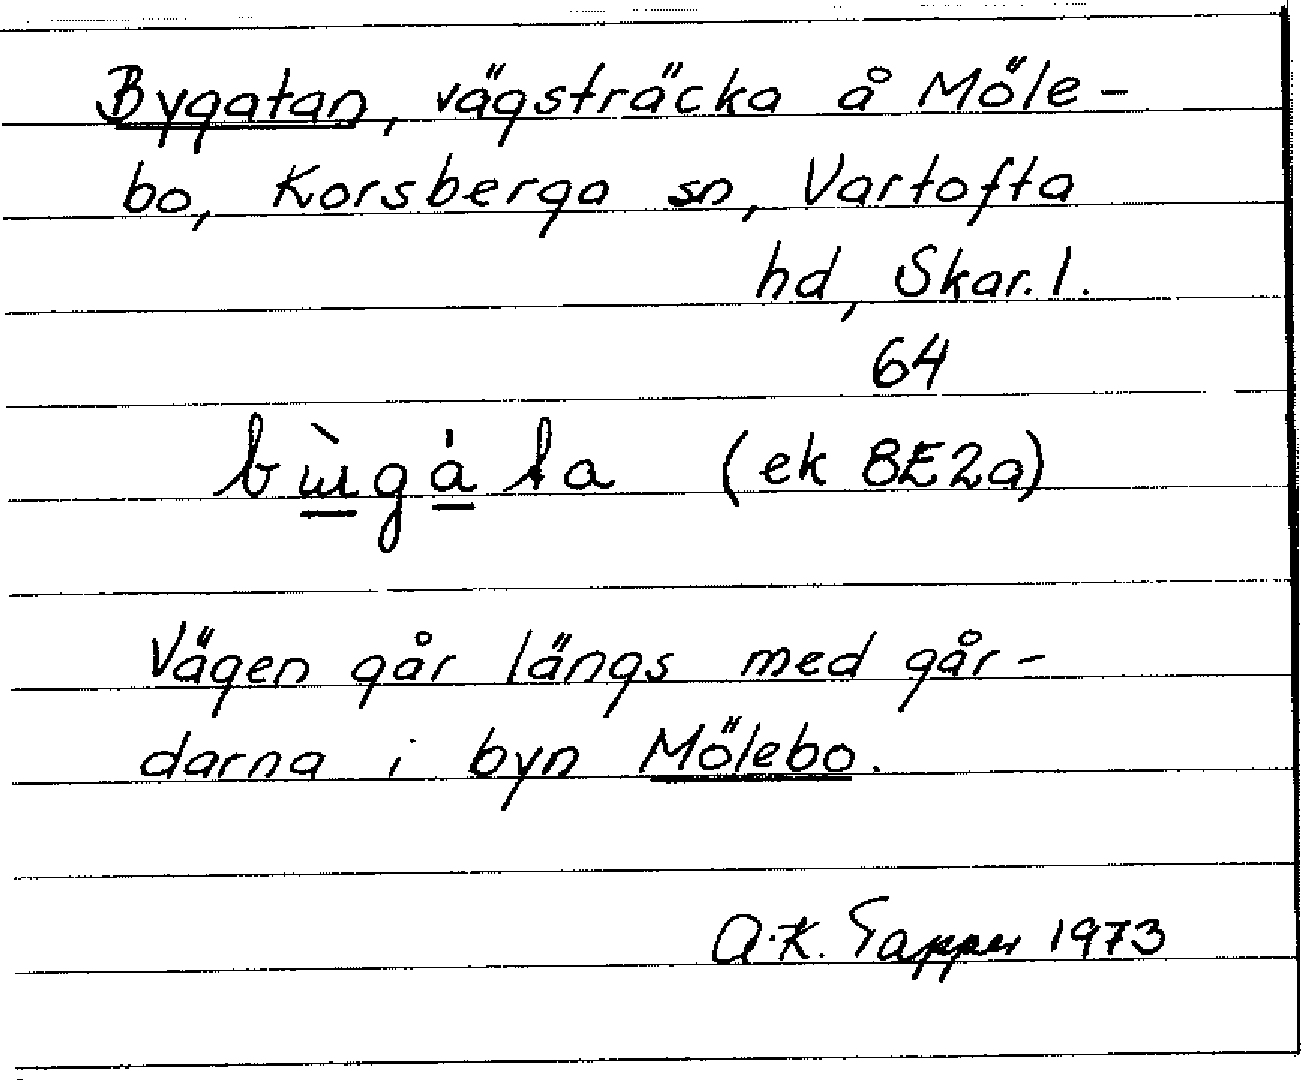 Bygatan, vägsträcka å Möle-
bo, Korsberga sn, Vartofta
hd, Skar. l.
64
(ek 8E2a)
Vägen går längs med går-
darna i byn Mölebo.
A.K. Tapper 1973